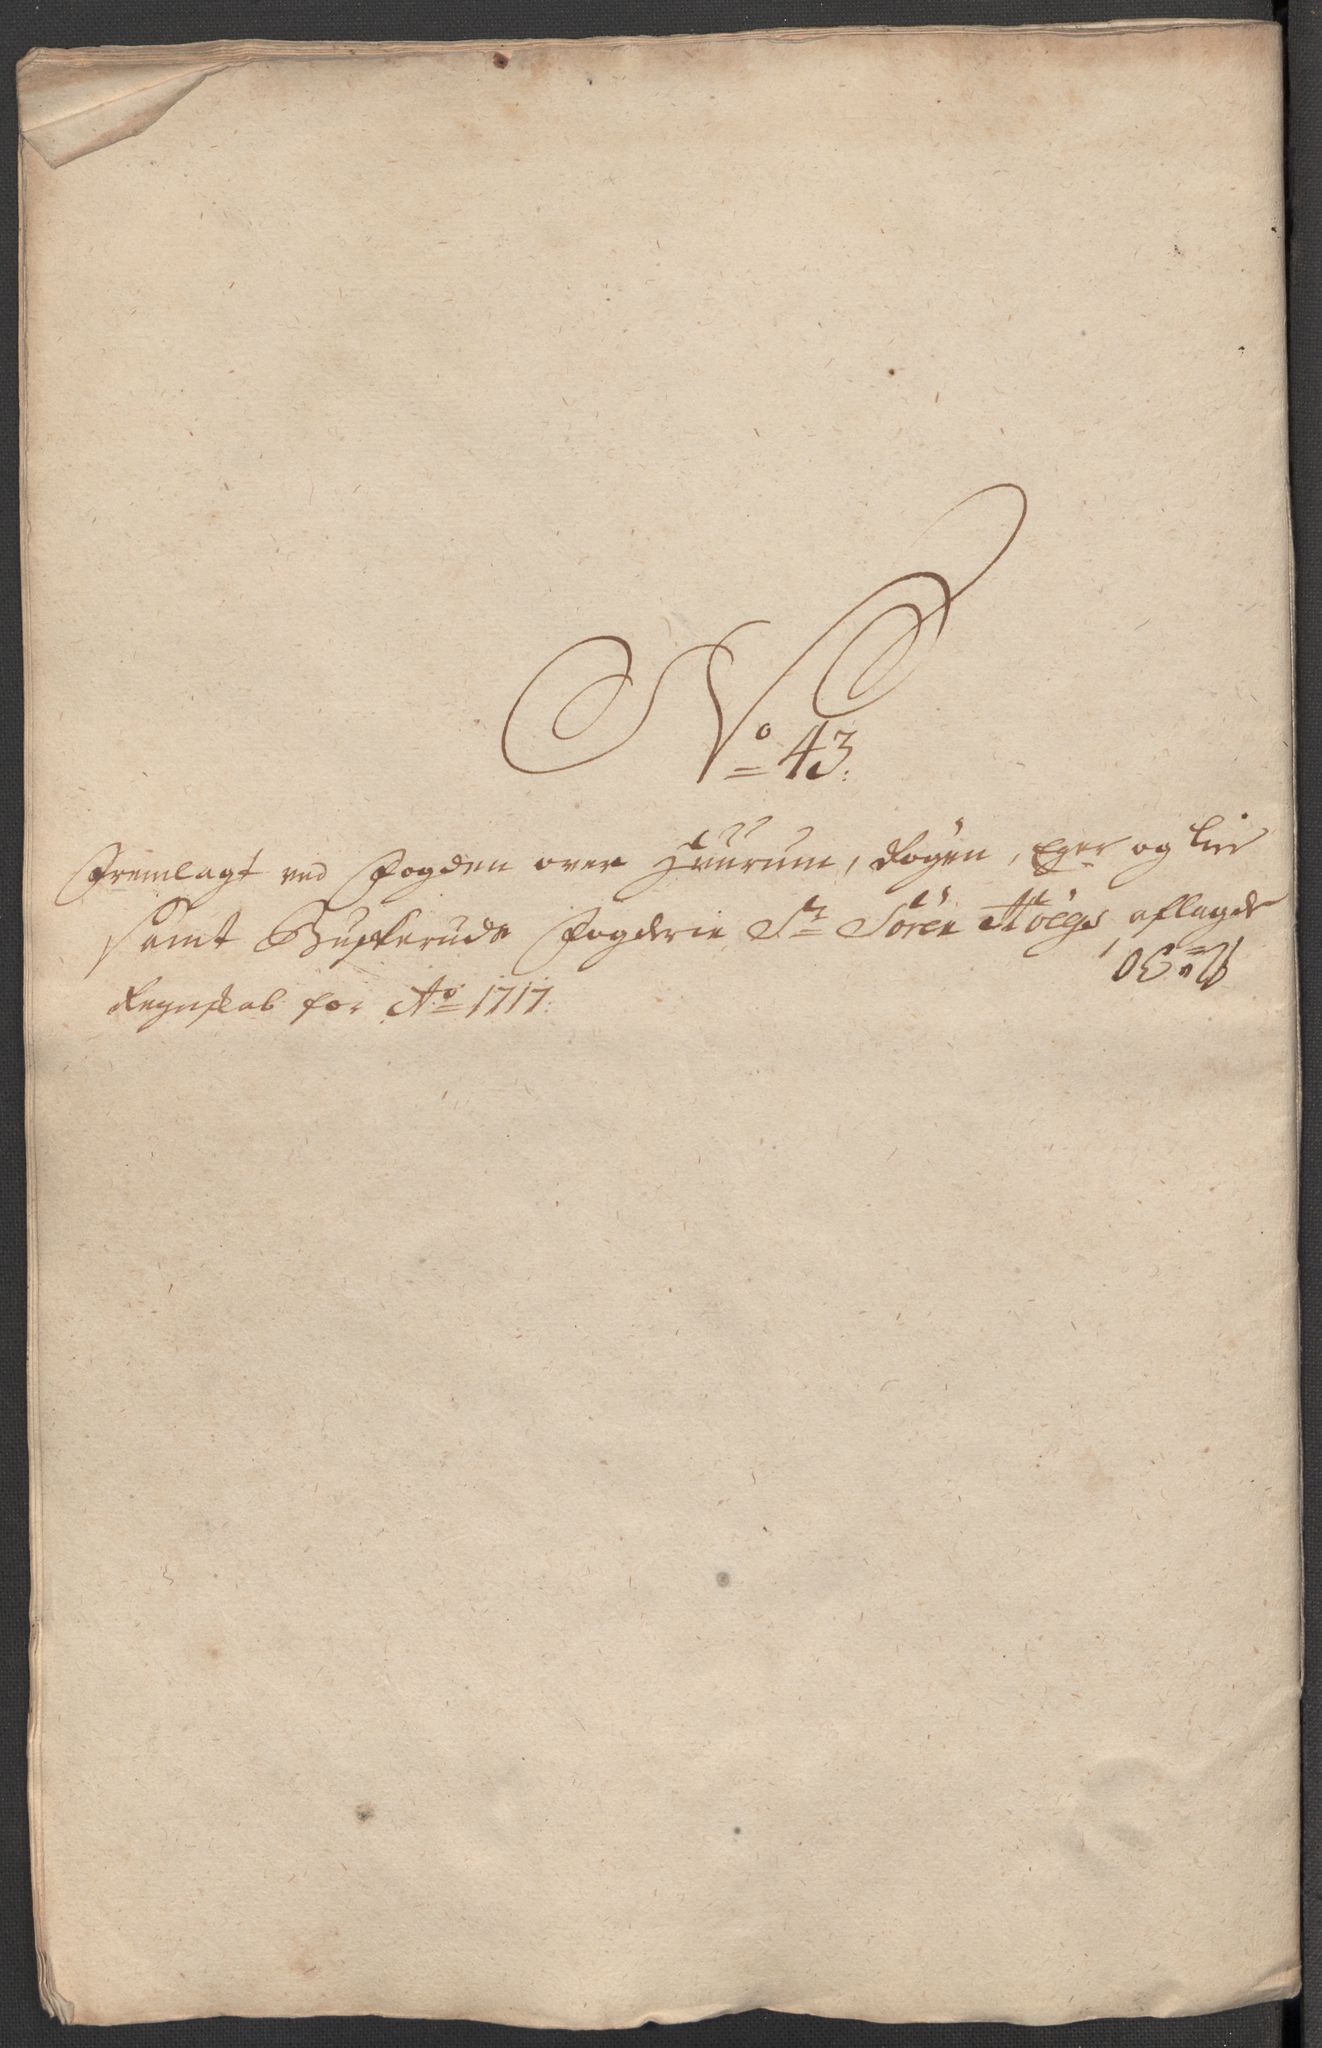 No 43.
Fremlagt ved Fogden over Huurum, Røgen, Eger og Lier
samt Buskeruds Fogderie Sr Søren Aboegs aflagde
Regnskab for Ao 1717.
No 30